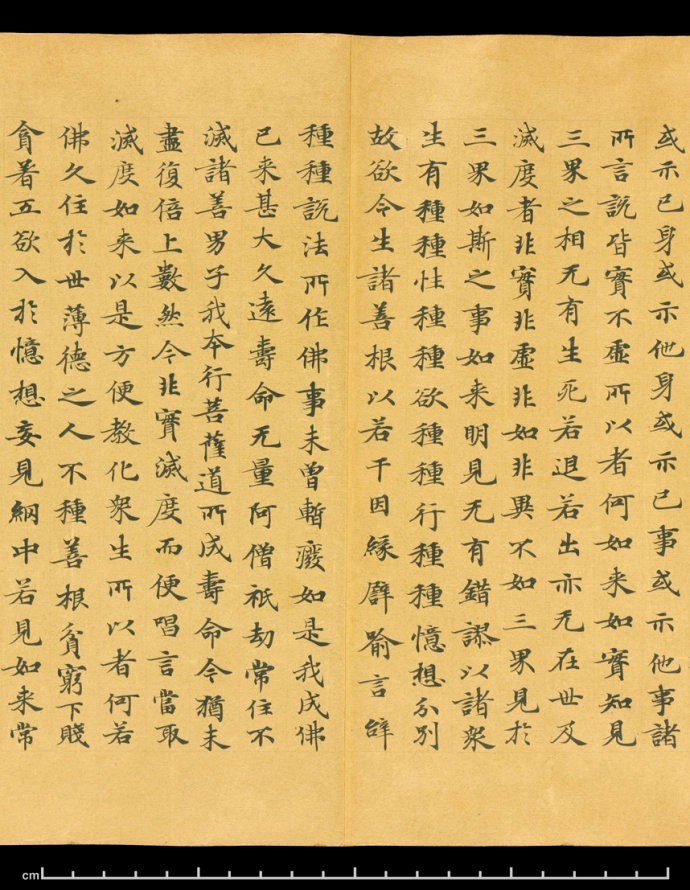 或示己身或示他身或示己事或示他事諸
所言說皆實不虛所以者何如来如實知見
三界之相无有生死若退若出亦无在世及
滅度者非實非虛非如非異不如三界見於
三界如斯之事如来明見无有錯謬以諸衆
生有種種性種種欲種種行種種憶想分別
故欲令生諸善根以若干因緣譬喻言辭
種種說法所作佛事未曾暫癈如是我成佛
已来甚大久遠壽命无量阿僧祇劫常住不
滅諸善男子我本行菩薩道所成壽命今猶未
盡復倍上數然今非實滅度而便唱言當取
滅度如来以是方便教化衆生所以者何若
佛久住於世薄德之人不種善根貧窮下賤
貪著五欲入於憶想妄見網中若見如来常
cm